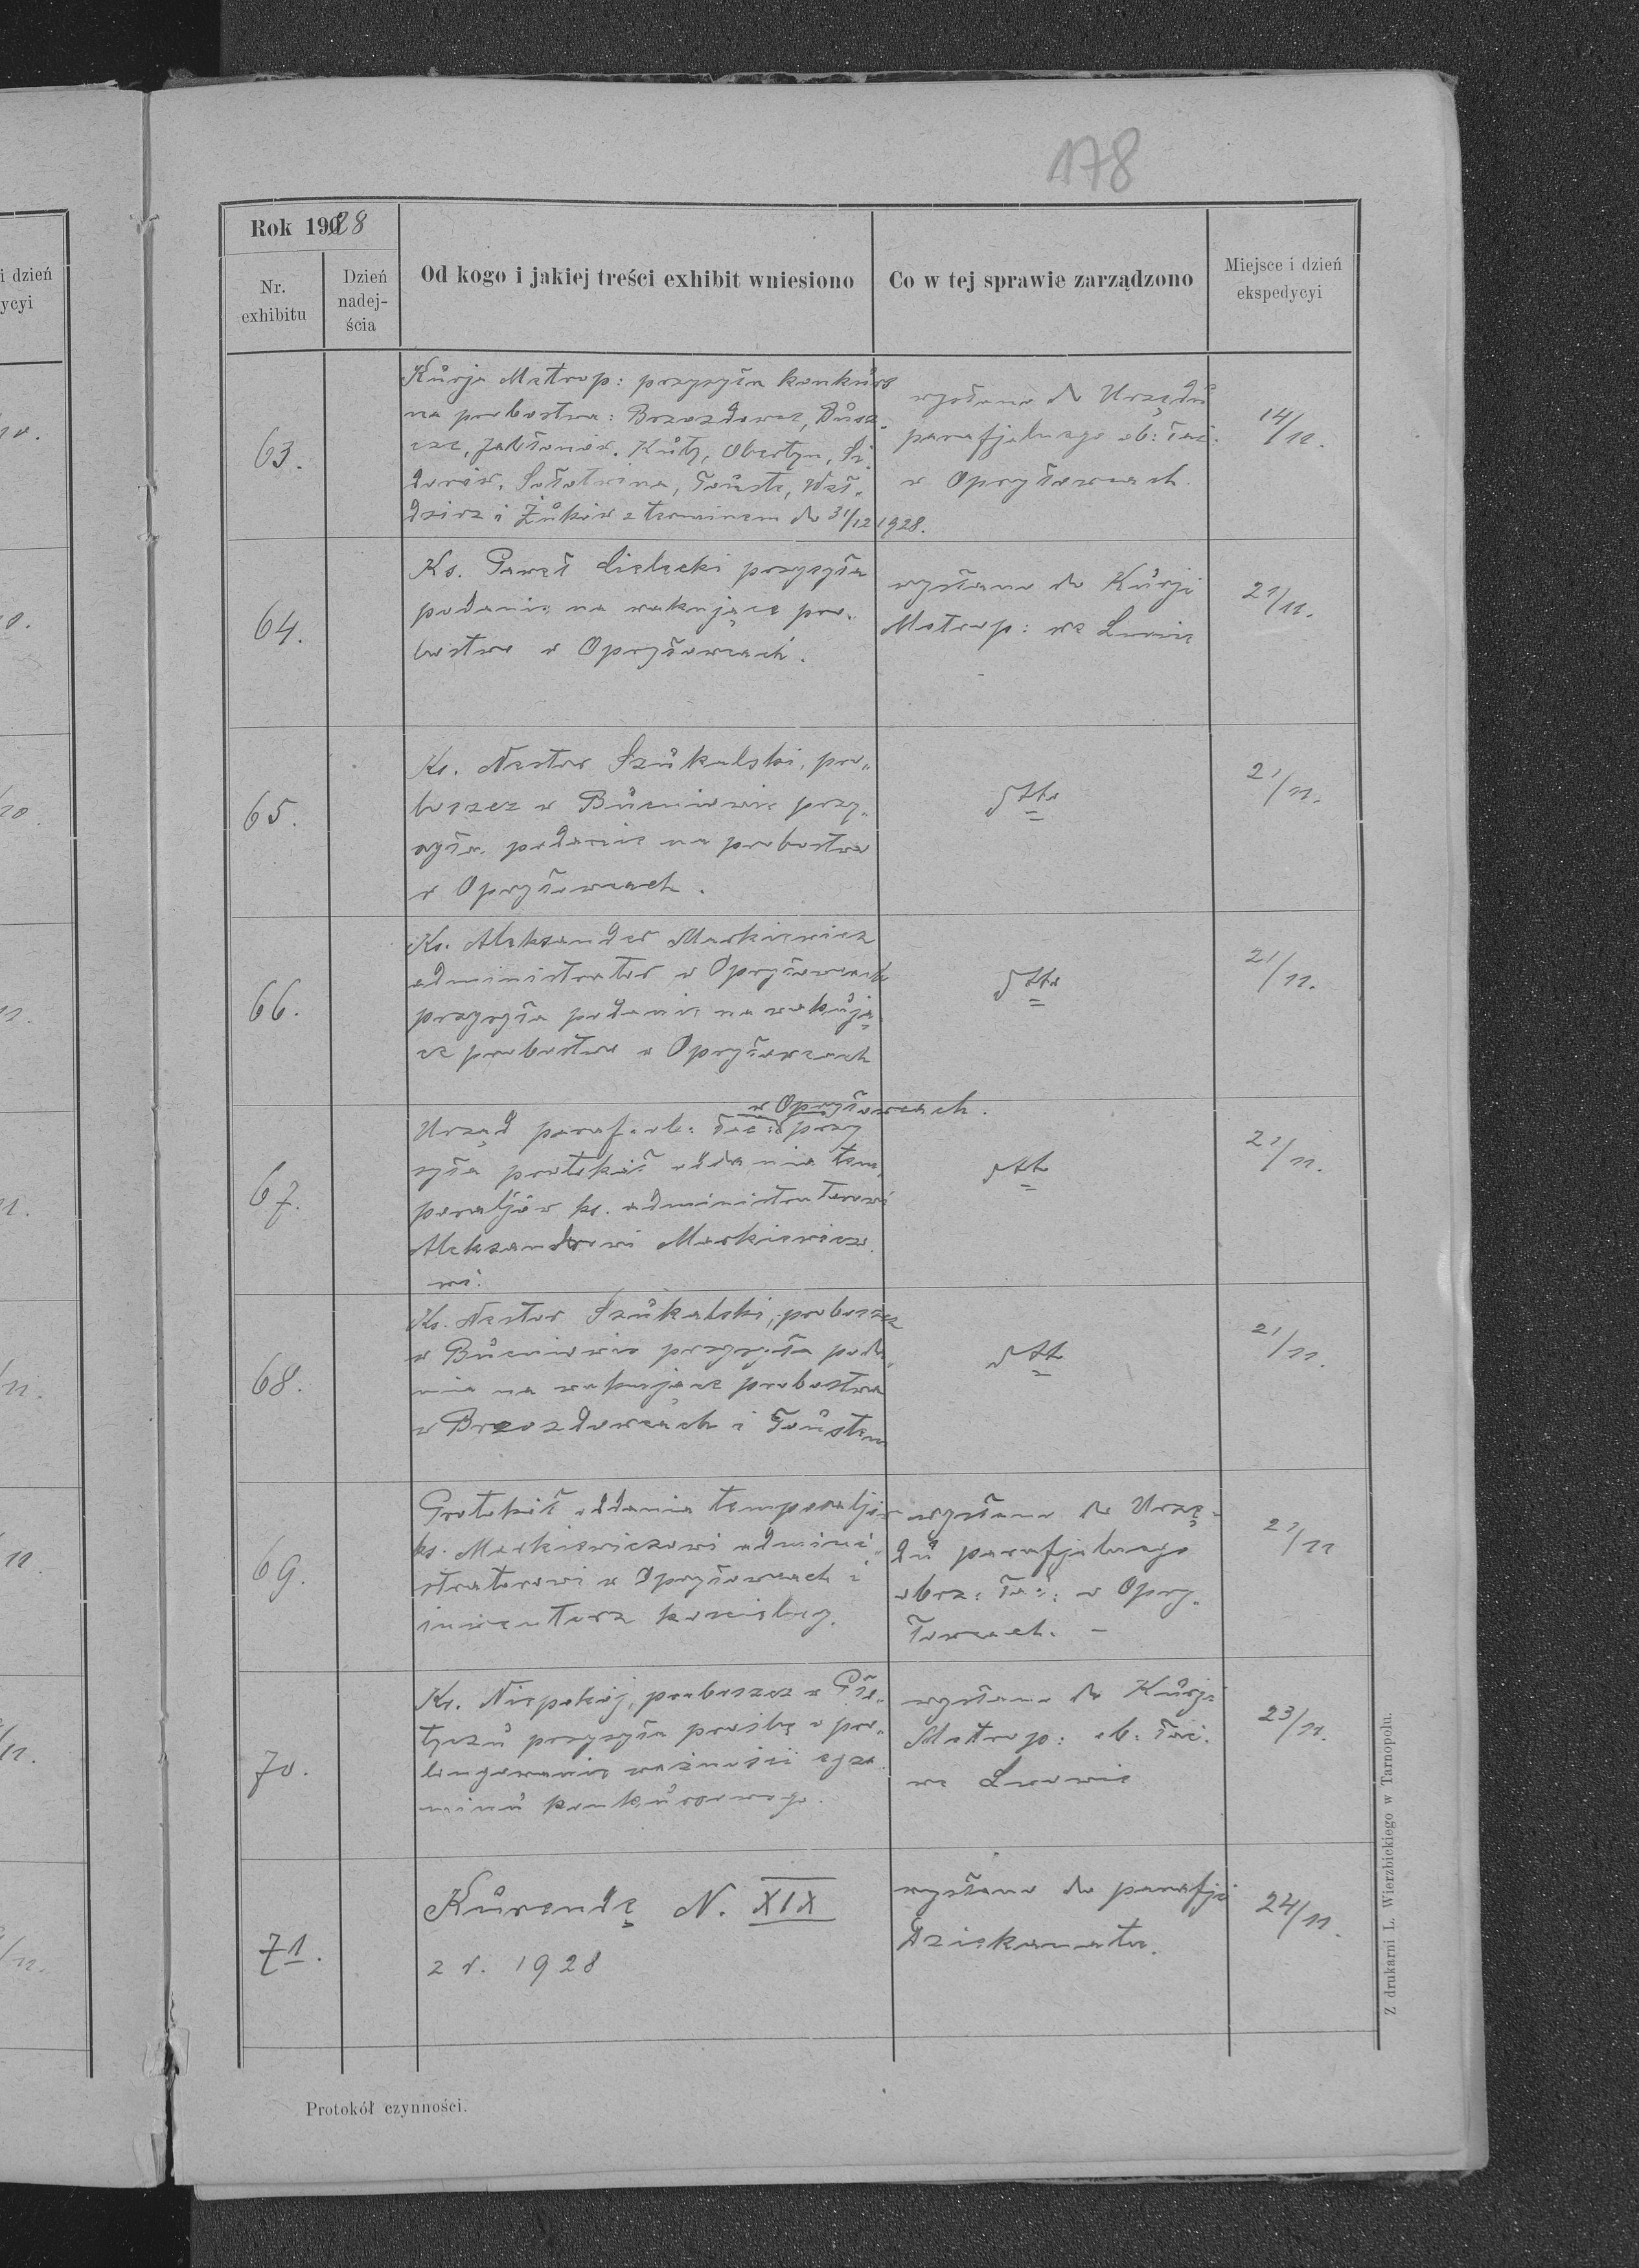 178
Rok 1928
Nr. exhibitu
Dzień nadejścia
Od kogo i jakiej treści exhibit wniesiono
Co w tej sprawie zarządzono
Miejsce i dzień ekspedycyi
63.
Kurja Metrop: przysyła konkurs
na probostwa: Brzozdowce, Dusz„
cze, Jabłonów, Kuty, Obertyn, Si„
dorów, Sołotwina, Touste, Weł„
dzirz i Żuków z terminem do 31/12 1928.
wysłano do Urzędu
parafjalnego ob: łać:
w Opryłowcach.
14/11.
64.
Ks. Paweł Sielecki przysyła
podanie na wakujące pro„
bostwo w Opryłowcach.
wysłano do Kurji
Metrop: we Lwowie
21/11.
65.
Ks. Nestor Szukalski, pro„
boszcz w Bucniowie przy„
syła podanie na probostwo
w Opryłowcach.
dtto
21/11.
66.
Ks. Aleksander Markiewicz
administrator w Opryłowcach
przysyła podanie na wakują
ce probostwo w Opryłowcach
dtto
21/11.
67.
w Opryłowcach.
Urząd paraf. ob: łać: przy
syła protokół oddania tem„
poraljów ks. administratorowi
Aleksandrowi Markiewiczo„
wi.
dtto
21/11.
68.
Ks. Nestor Szukalski, proboszcz
w Bucniowie przysyła poda„
nia na wakujące probostwa
w Brzozdowcach i Toustem
dtto
21/11.
69.
Protokół oddania temporaljów
ks. Markiewiczowi admini„
stratorowi w Opryłowcach i
inwentarz kościelny.
wysłano do Urzę„
du parafjalnego
obrz: łać: w Opry„
łowcach. –
21/11
70.
Ks. Niepokój, proboszcz w Pło„
tyczu przysyła prośbę o pro„
longowanie ważności egza„
minu konkursowego.
wysłano do Kurji
Metrop: ob: łać.
we Lwowie
23/11.
71.
Kurendę N. XIX
z r. 1928
wysłano do parafji
Dziekanatu.
24/11.
Protokół czynności.
Z drukarni L. Wierzbickiego w Tarnopolu.